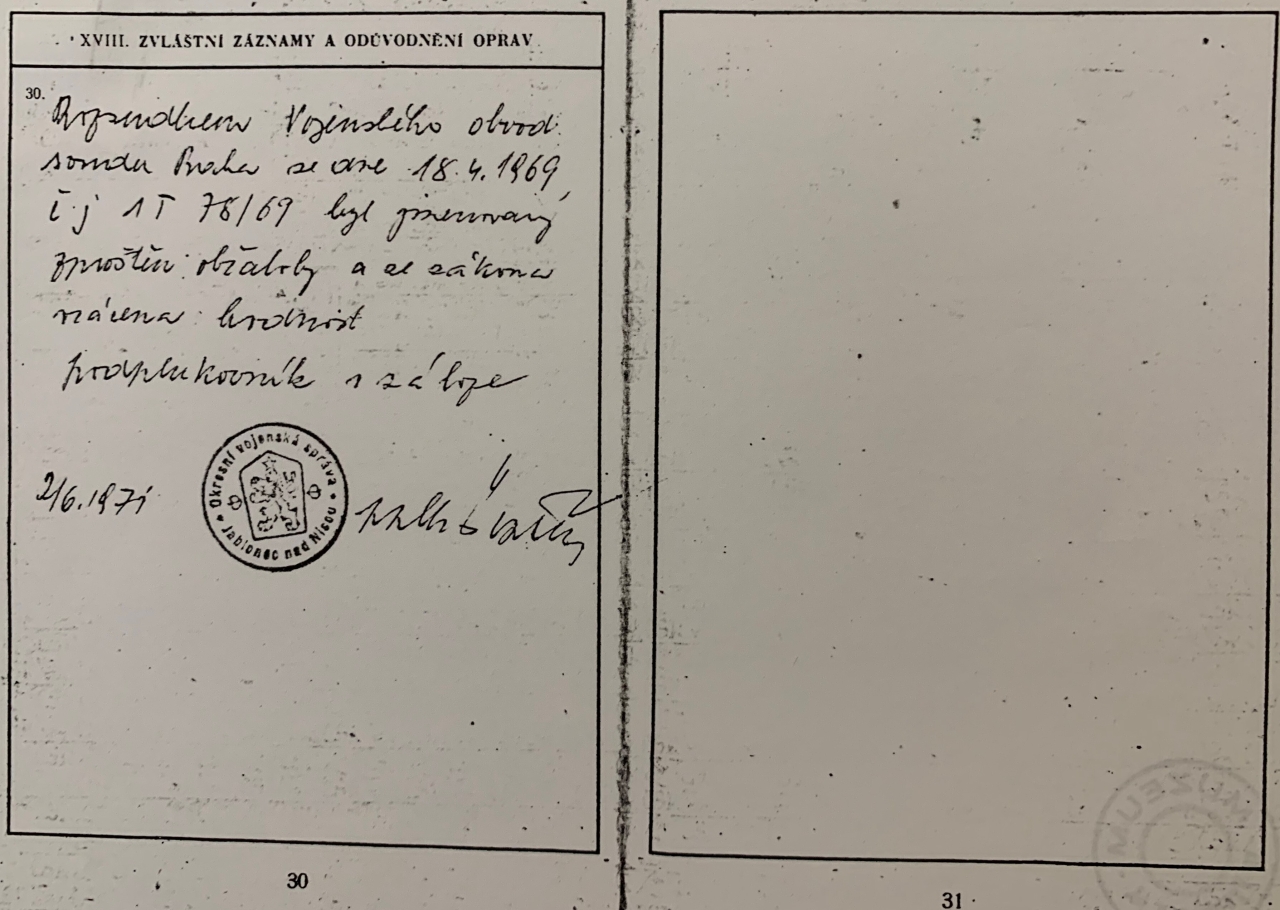 XVIII. ZVLÁŠTNÍ ZÁZNAMY A ODŮVODNĚNÍ OPRAV
30.
Rozsudkem Vojenského obvod.
soudu Praha ze dne 18.4.1969,
č.j 1T 78/69 byl jmenovaný
zproštěn obžaloby a ze zákona
vrácena hodnost
podplukovník v záloze
2/6.1971
Okresní vojenská správa
Jablonec nad Nisou
30
31
MUZEUM